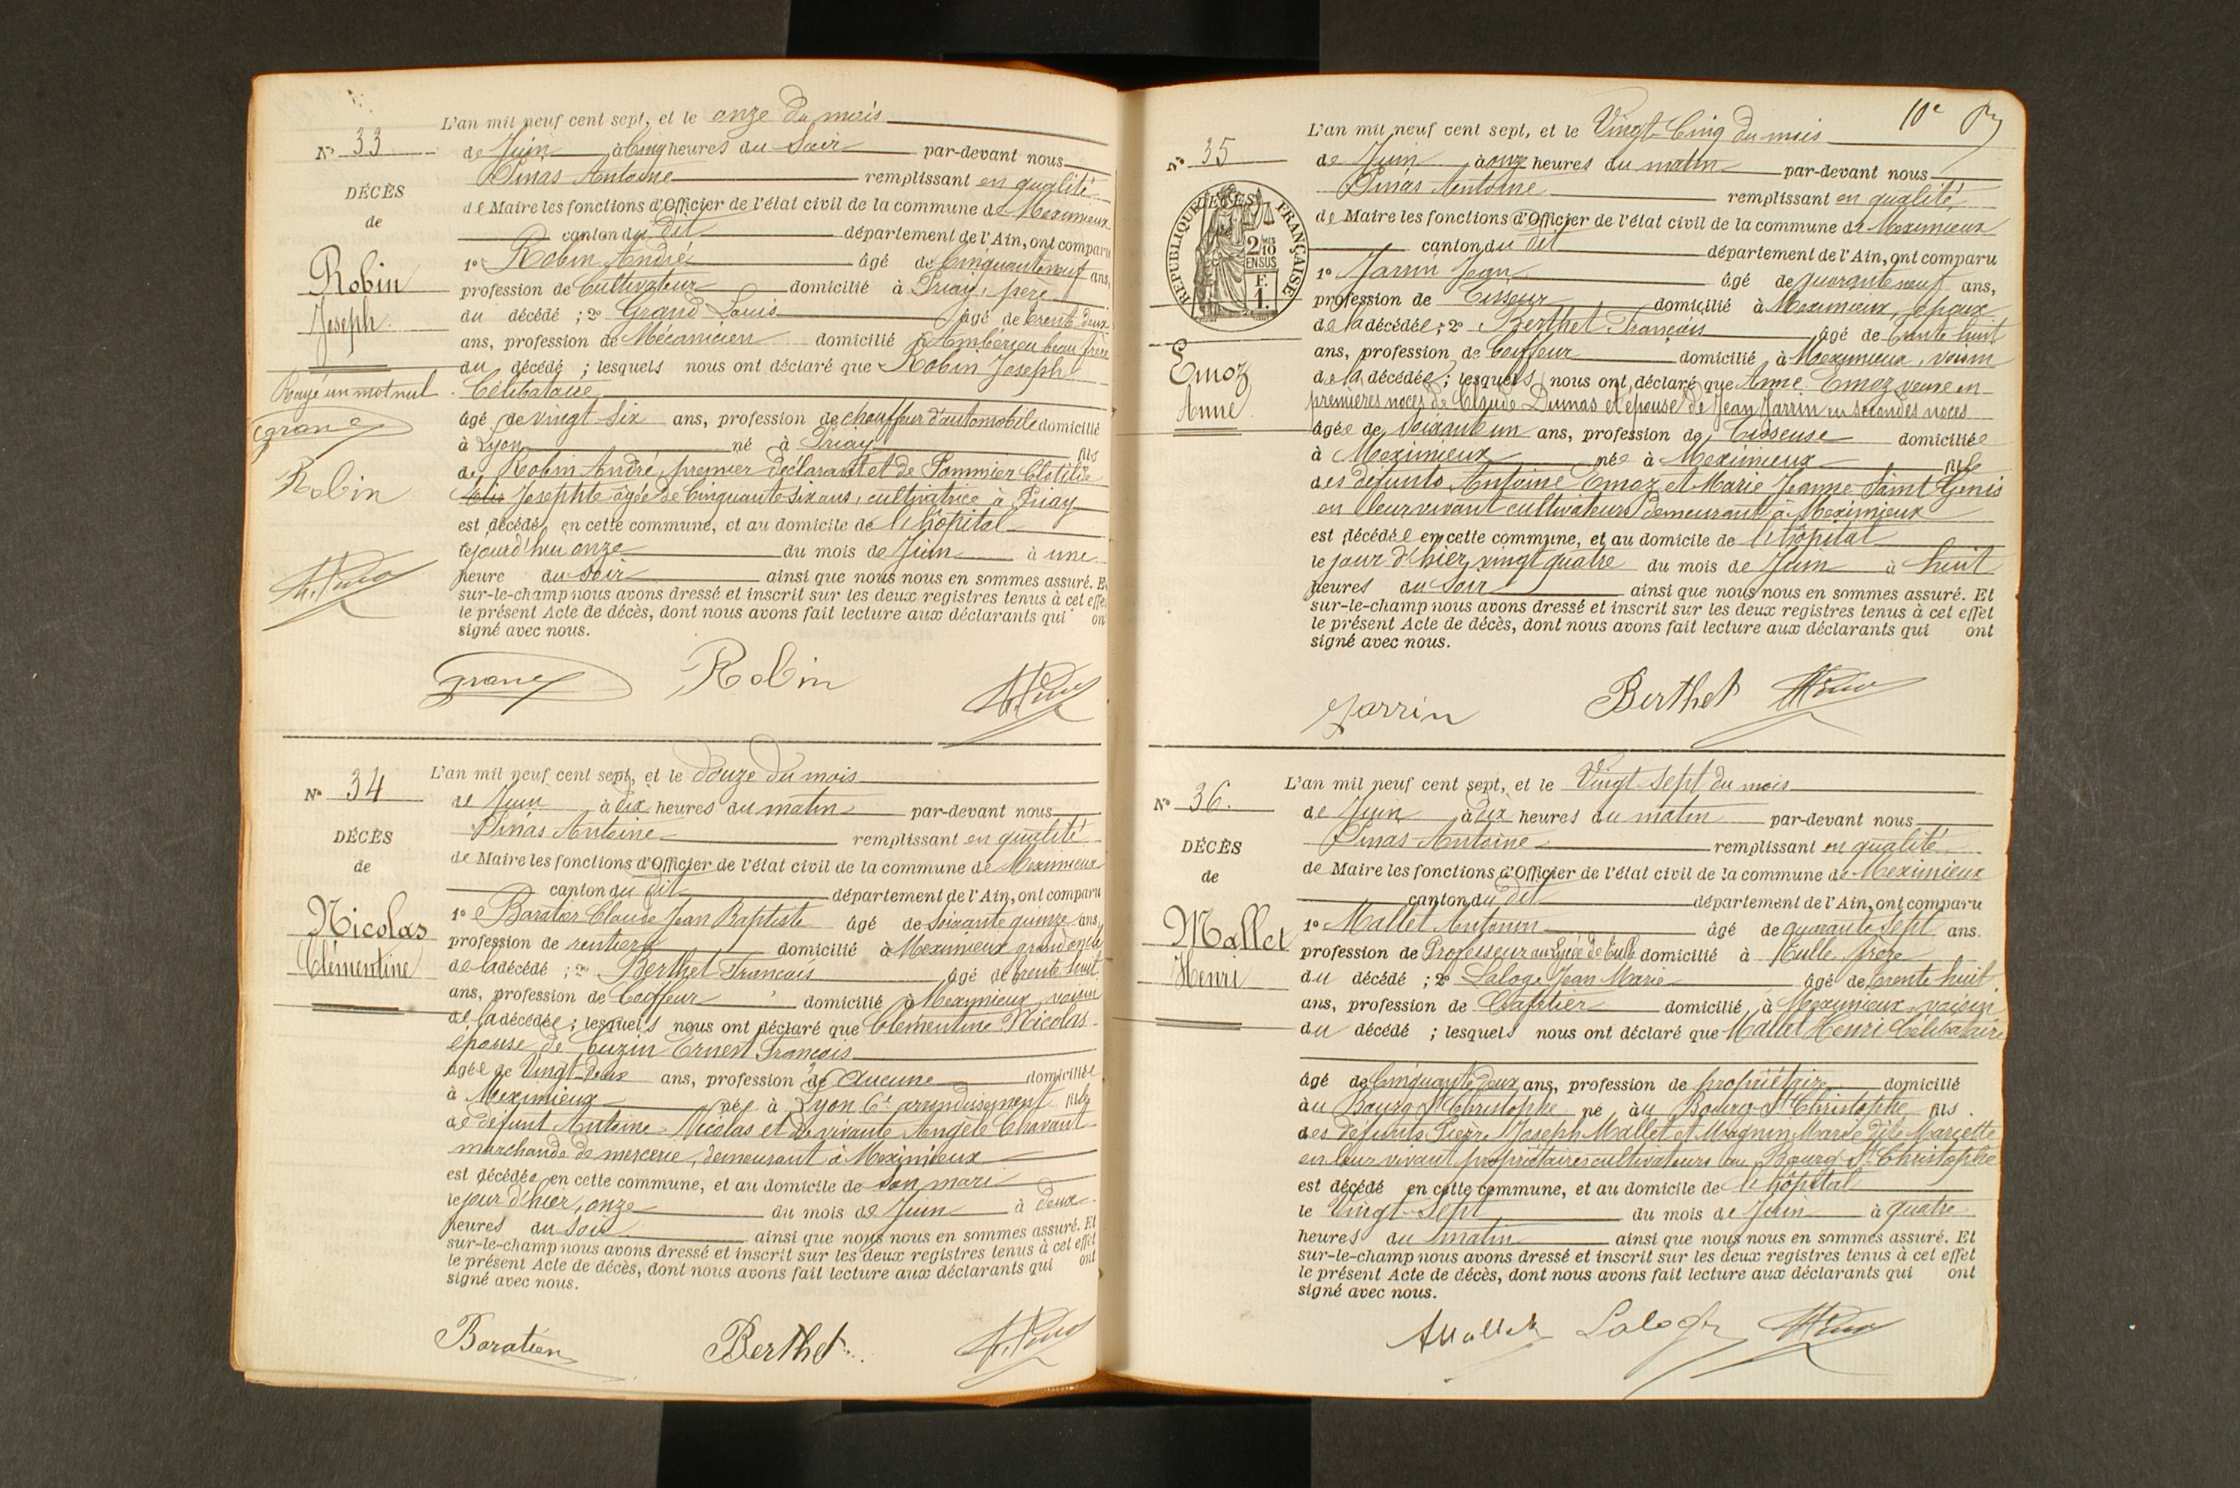 N° 33
DÉCÈS
de
Robin
Joseph
Rayé un mot nul
Grand
Robin
L'an mil neuf cent sept, et le onze du mois
de Juin à cinq heures du soir par-devant nous
Pinas Antoine remplissant en qualité
de Maire les fonctions d'Officier de l'état civil de la commune de Meximieux
canton du dit département de l'Ain, ont comparu
1° Robin André âgé de Cinquante neuf ans,
profession de Cultivateur domicilié à Priay, père
du décédé ; 2° Grand Louis âgé de trente deux
ans, profession de Mécanicien domicilié à Ambérieu beau frère
du décédé ; lesquels nous ont déclaré que Robin Joseph
Célibataire
âgé de vingt six ans, profession de chauffeur d'automobile domicilié
à Lyon né à Priay fils
de Robin André, premier déclarant et de Pommier Clotilde
Josephte âgée de Cinquante six ans, cultivatrice à Priay
est décédé, en cette commune, et au domicile de l'hôpital
cejourd'hui onze du mois de Juin à une
heure du soir ainsi que nous nous en sommes assuré. Et
sur-le-champ nous avons dressé et inscrit sur les deux registres tenus à cet effet
le présent Acte de décès, dont nous avons fait lecture aux déclarants qui ont
signé avec nous.
Grand Robin
N° 34
DÉCÈS
de
Nicolas
Clémentine
L'an mil neuf cent sept, et le douze du mois
de Juin à dix heures du matin par-devant nous
Pinas Antoine remplissant en qualité
de Maire les fonctions d'Officier de l'état civil de la commune de Meximieux
canton du dit département de l'Ain, ont comparu
1° Baratier Claude Jean Baptiste âgé de soixante quinze ans,
profession de rentier domicilié à Meximieux grand oncle
de la décédé ; 2° Berthet François âgé de trente huit
ans, profession de Coiffeur domicilié à Meximieux, voisin
de la décédée ; lesquels nous ont déclaré que Clémentine Nicolas
épouse de Cuzin Ernest François
âgée de Vingt-deux ans, profession de Aucune domiciliée
à Meximieux née à Lyon 6e arrondissement fille
de défunt Antoine Nicolas et de vivante Angèle Chavant
marchande de mercerie, demeurant à Meximieux
est décédée, en cette commune, et au domicile de son mari
le jour d'hier, onze du mois de Juin à deux
heures du soir ainsi que nous nous en sommes assuré. Et
sur-le-champ nous avons dressé et inscrit sur les deux registres tenus à cet effet
le présent Acte de décès, dont nous avons fait lecture aux déclarants qui ont
signé avec nous.
Baratier Berthet
10e
N° 35
RÉPUBLIQUE FRANÇAISE
2/10 EN SUS
F. 1.
Emoz
Anne
L'an mil neuf cent sept, et le Vingt-Cinq du mois
de Juin à onze heures du matin par-devant nous
Pinas Antoine remplissant en qualité
de Maire les fonctions d'Officier de l'état civil de la commune de Meximieux
canton du dit département de l'Ain, ont comparu
1° Jarrin Jean âgé de quarante neuf ans,
profession de Tisseur domicilié à Meximieux, époux
de la décédée ; 2° Berthet François âgé de trente huit
ans, profession de Coiffeur domicilié à Meximieux, voisin
de la décédée ; lesquels nous ont déclaré que Anne Emoz veuve en
premières noces de Claude Dumas et épouse de Jean Jarrin en secondes noces
âgée de soixante un ans, profession de Tisseuse domiciliée
à Meximieux née à Meximieux fille
des défunts Antoine Emoz et Marie Jeanne Saint Genis
en leur vivant cultivateurs demeurant à Meximieux
est décédée en cette commune, et au domicile de l'hôpital
le jour d'hier, vingt quatre du mois de Juin à huit
heures du soir ainsi que nous nous en sommes assuré. Et
sur-le-champ nous avons dressé et inscrit sur les deux registres tenus à cet effet
le présent Acte de décès, dont nous avons fait lecture aux déclarants qui ont
signé avec nous.
Jarrin Berthet
N° 36.
DÉCÈS
de
Mallet
Henri
L'an mil neuf cent sept, et le Vingt sept du mois
de Juin à dix heures du matin par-devant nous
Pinas Antoine remplissant en qualité
de Maire les fonctions d'Officier de l'état civil de la commune de Meximieux
canton du dit département de l'Ain, ont comparu
1° Mallet Antonin âgé de quarante sept ans.
profession de Professeur au Lycée de Tulle domicilié à Tulle, frère
du décédé ; 2° Laloge Jean Marie âgé de trente huit
ans, profession de Cafetier domicilié, à Meximieux, voisin
du décédé ; lesquels nous ont déclaré que Mallet Henri Célibataire
âgé de Cinquante deux ans, profession de propriétaire domicilié
au Bourg St Christophe né au Bourg St Christophe fils
des défunts Pierre Joseph Mallet et Magnin Marie dite Mariette
en leur vivant propriétaires cultivateurs au Bourg St Christophe
est décédé en cette commune, et au domicile de l'hôpital
le Vingt-Sept du mois de Juin à quatre
heures du matin ainsi que nous nous en sommes assuré. Et
sur-le-champ nous avons dressé et inscrit sur les deux registres tenus à cet effet
le présent Acte de décès, dont nous avons fait lecture aux déclarants qui ont
signé avec nous.
AMallet Laloge